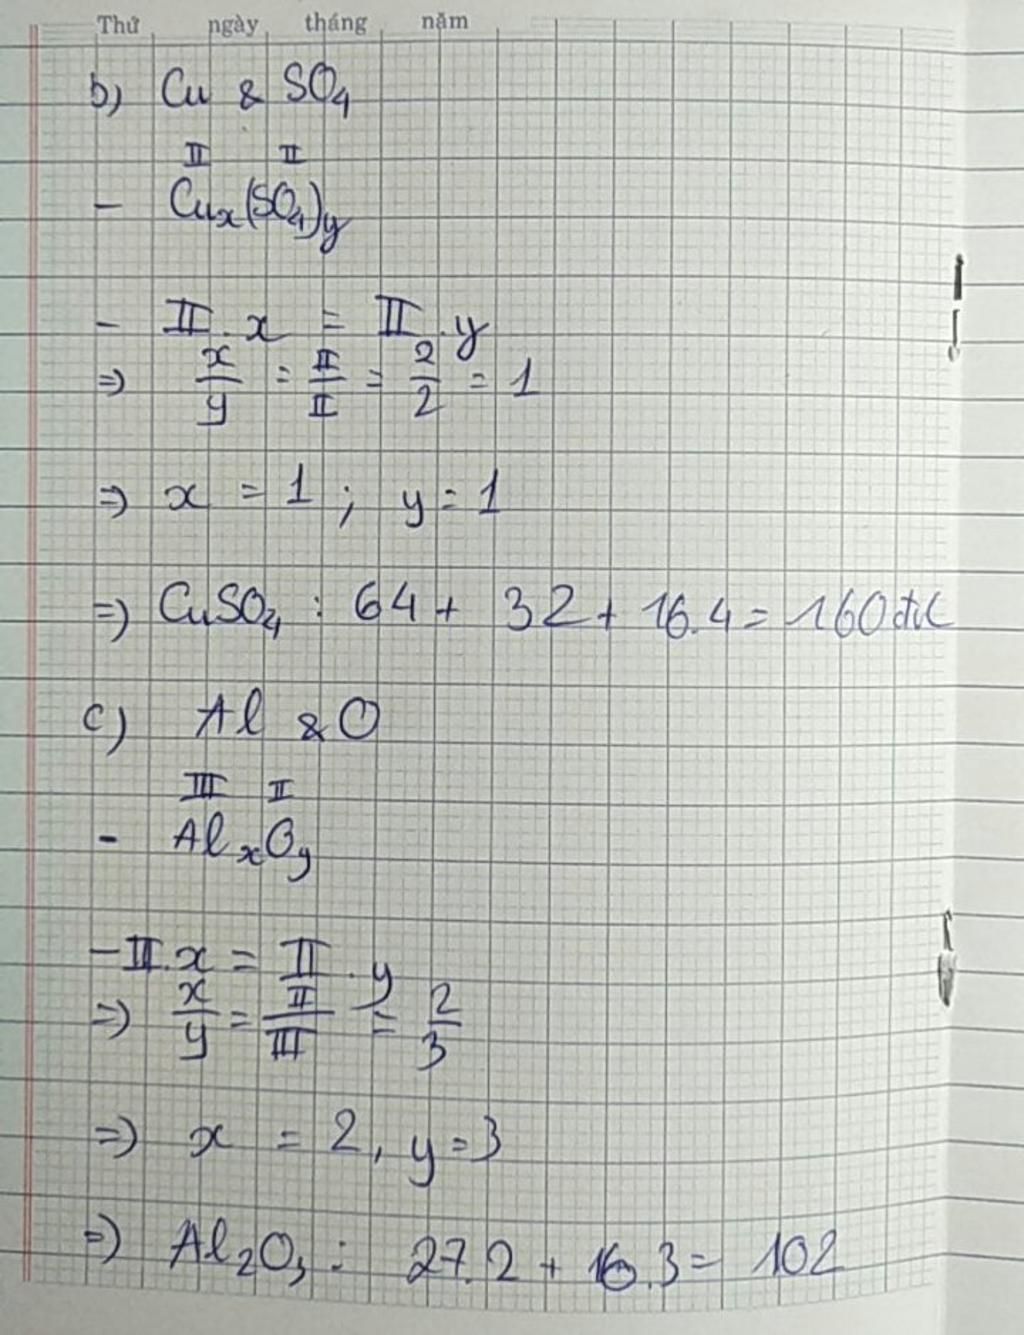 Thứ ngày tháng năm
b) Cu & SO₄
II II
- Cuₓ(SO₄)y
- II . x = II . y
=> x/y = II/II = 2/2 = 1
=> x = 1 ; y = 1
=> CuSO₄ : 64 + 32 + 16.4 = 160 đvC
c) Al & O
III II
- AlₓOy
- III . x = II . y
=> x/y = II/III = 2/3
=> x = 2 , y = 3
=> Al₂O₃ : 27.2 + 16.3 = 102